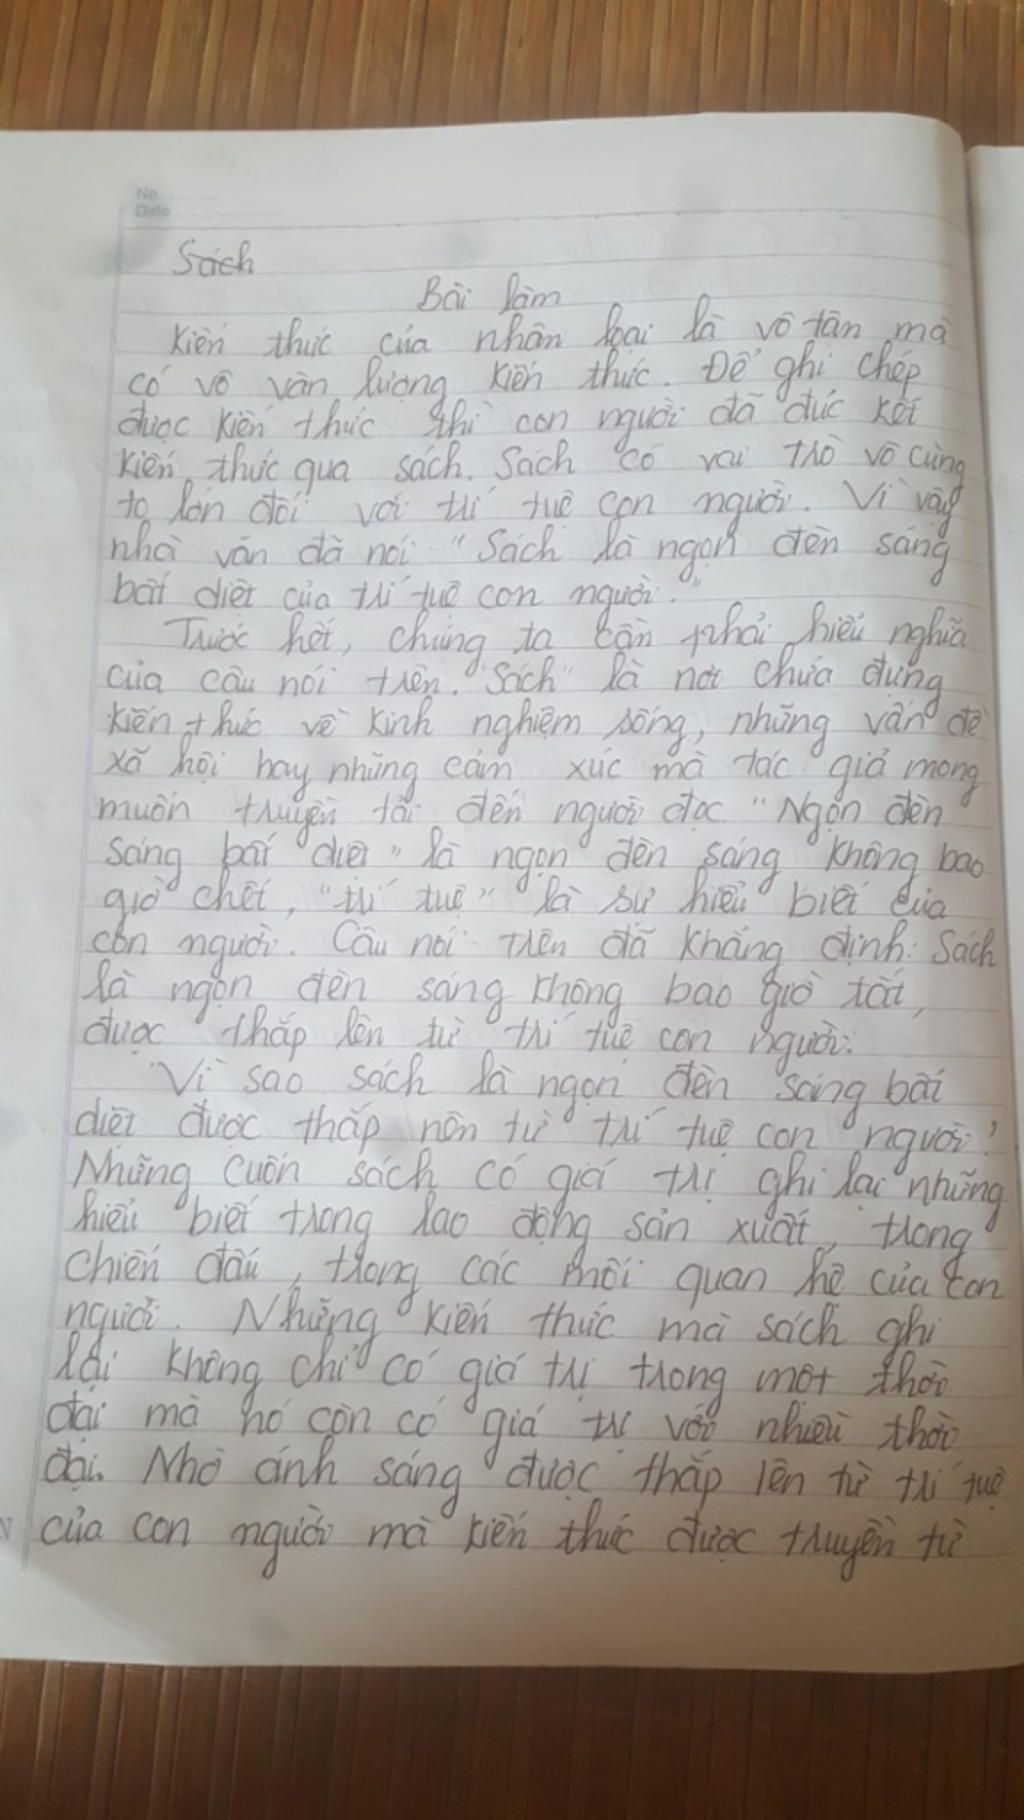 No.
Date
Sách
Bài làm
Kiến thức của nhân loại là vô tận mà
có vô vàn lượng kiến thức. Để ghi chép
được kiến thức thì con người đã đúc kết
kiến thức qua sách. Sách có vai trò vô cùng
to lớn đối với trí tuệ con người. Vì vậy
nhà văn đã nói "Sách là ngọn đèn sáng
bất diệt của trí tuệ con người."
Trước hết, chúng ta cần phải hiểu nghĩa
của câu nói trên. "Sách" là nơi chứa đựng
kiến thức về kinh nghiệm sống, những vấn đề
xã hội hay những cảm xúc mà tác giả mong
muốn truyền tải đến người đọc. "Ngọn đèn
sáng bất diệt" là ngọn đèn sáng không bao
giờ chết, "trí tuệ" là sự hiểu biết của
con người. Câu nói trên đã khẳng định: Sách
là ngọn đèn sáng không bao giờ tắt,
được thắp lên từ trí tuệ con người.
Vì sao sách là ngọn đèn sáng bất
diệt được thắp nên từ trí tuệ con người?
Những cuốn sách có giá trị ghi lại những
hiểu biết trong lao động sản xuất, trong
chiến đấu, trong các mối quan hệ của con
người. Những kiến thức mà sách ghi
lại không chỉ có giá trị trong một thời
đại mà nó còn có giá trị với nhiều thời
đại. Nhờ ánh sáng được thắp lên từ trí tuệ
của con người mà kiến thức được truyền từ